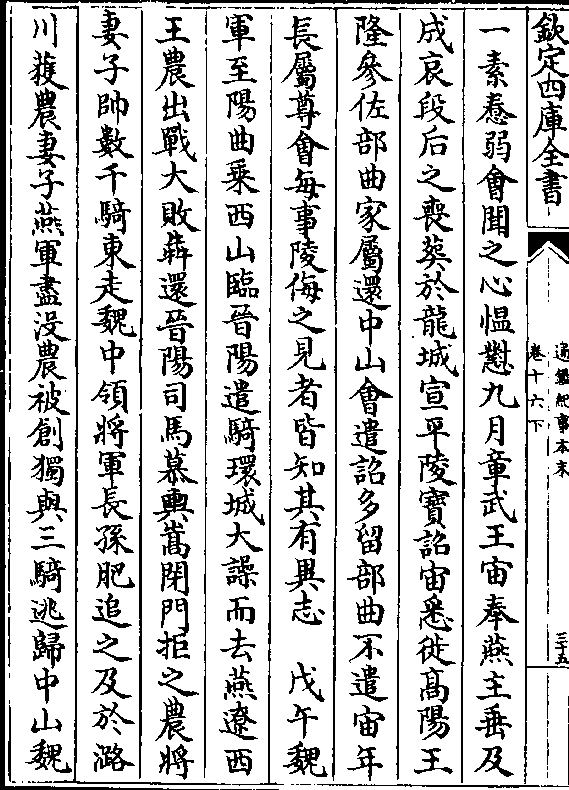 欽定四庫全書
通鑑紀事本末
卷十六下
三十五
一素惷弱會聞之心愠懟九月章武王宙奉燕主垂及
成哀段后之喪葬於龍城宣平陵寶詔宙悉徙髙陽王
隆參佐部曲家屬還中山會遣詔多留部曲不遣宙年
長屬尊會每事陵侮之見者皆知其有異志　戊午魏
軍至陽曲乗西山臨晉陽遣騎環城大譟而去燕遼西
王農出戰大敗犇還晉陽司馬慕輿嵩閉門拒之農將
妻子帥數千騎東走魏中領將軍長孫肥追之及於潞
川獲農妻子燕軍盡没農被創獨與三騎逃歸中山魏